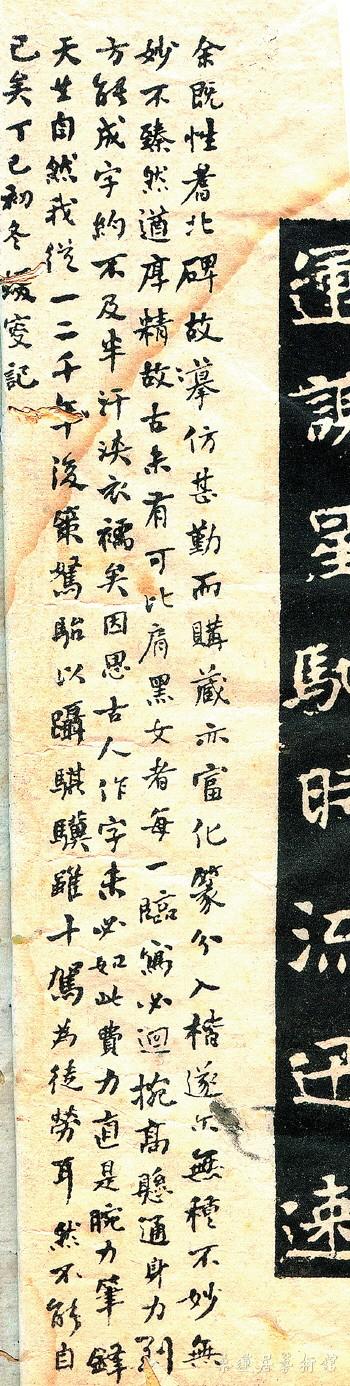 運謝星馳時流迅速
余既性耆北碑故摹仿甚勤而購藏亦富化篆分入楷遂尒無種不妙無
妙不臻然遒厚精故古未有可比肩黑女者每一臨寫必迴捥高懸通身力到
方能成字約不及半汗浹衣襦矣因思古人作字未必如此費力直是腕力筆鋒
天生自然我從一二千年後策駑駘以躡騏驥雖十駕為徒勞耳然不能自
已矣丁巳初冬蝯叟記
蓮居藝術館